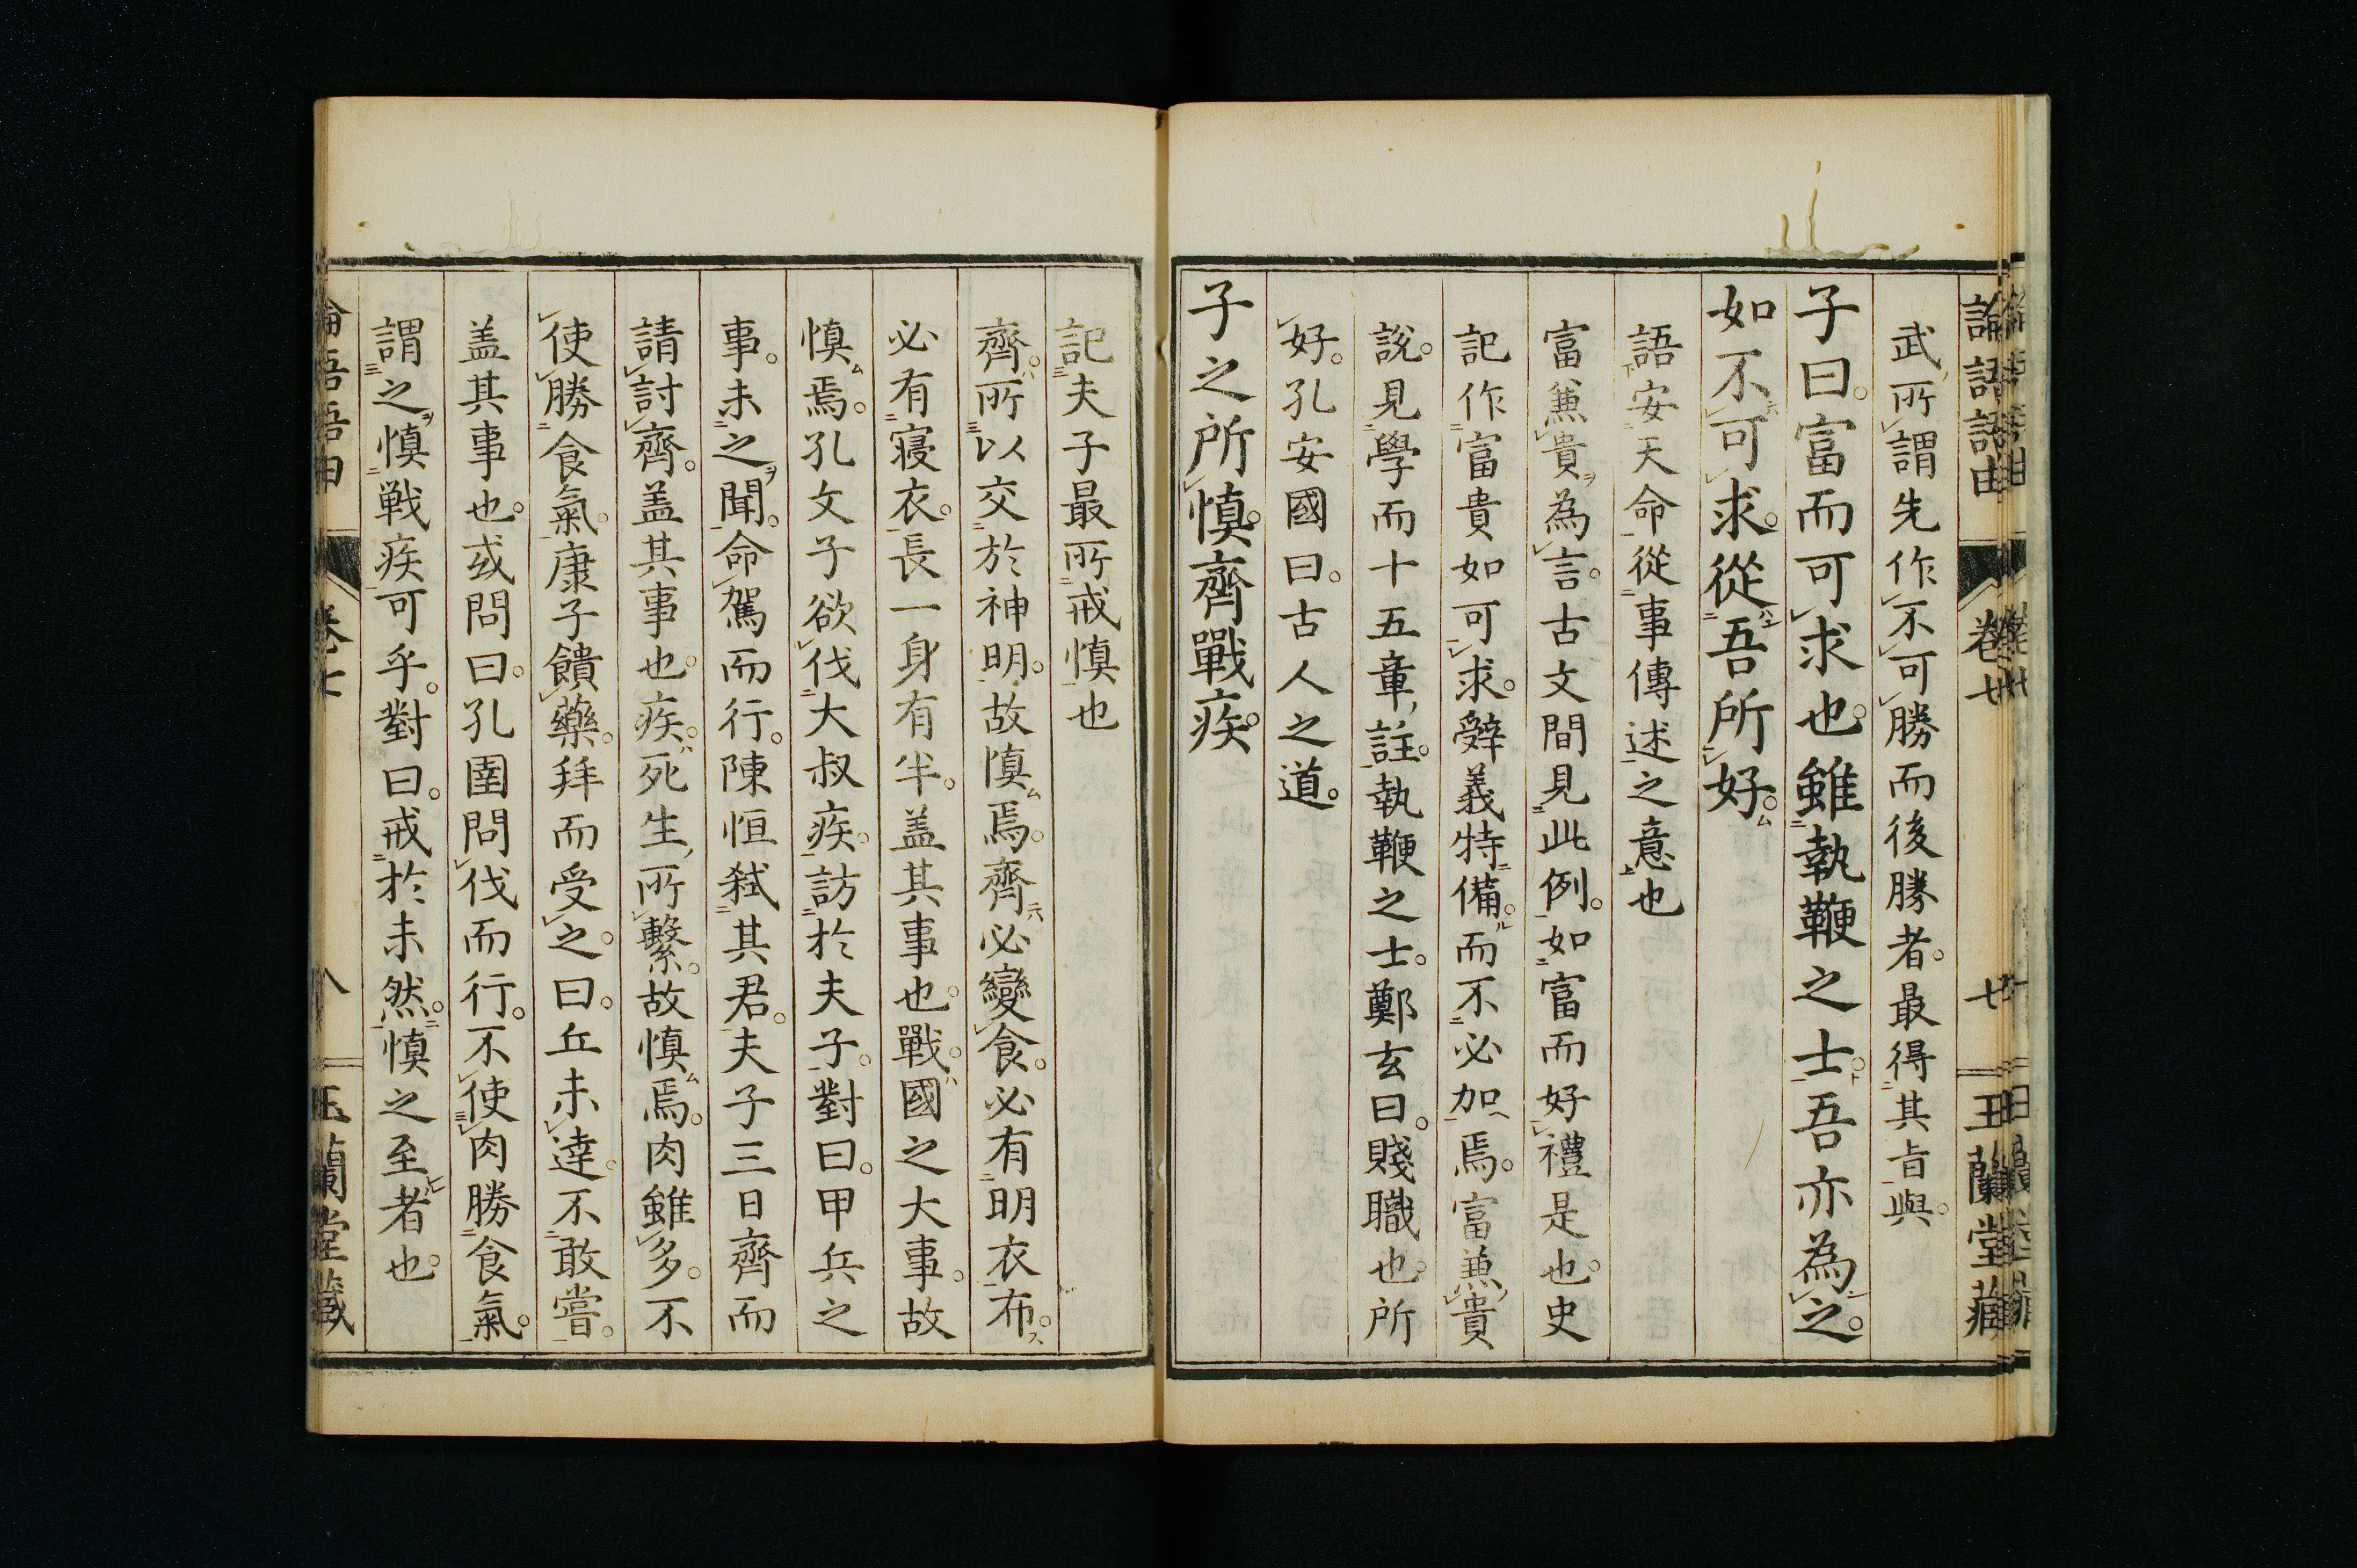 論語語由 卷七 七 玉蘭堂藏
武所謂先作不可勝而後勝者。最得其旨與。
子曰。富而可求也。雖執鞭之士。吾亦為之。
如不可求。從吾所好。
語安天命從事傳述之意也
富兼貴為言。古文間見此例。如富而好禮是也。史
記作富貴如可求。辭義特備。而不必加焉。富兼貴
說。見學而十五章註。執鞭之士。鄭玄曰。賤職也。所
好。孔安國曰。古人之道。
子之所慎。齊戰疾。
記夫子最所戒慎也
齊。所以交於神明。故慎焉。齊必變食。必有明衣布。
必有寢衣。長一身有半。盖其事也。戰。國之大事。故
慎焉。孔文子欲伐大叔疾。訪於夫子。對曰。甲兵之
事。未之聞。命駕而行。陳恒弒其君。夫子三日齊而
請討齊。盖其事也。疾。死生所繫。故慎焉。肉雖多。不
使勝食氣。康子饋藥。拜而受之。曰。丘未達。不敢嘗。
盖其事也。或問曰。孔圉問伐而行。不使肉勝食氣。
謂之慎戦疾可乎。對曰。戒於未然。慎之至者也。
論語語由 卷七 八 玉蘭堂藏